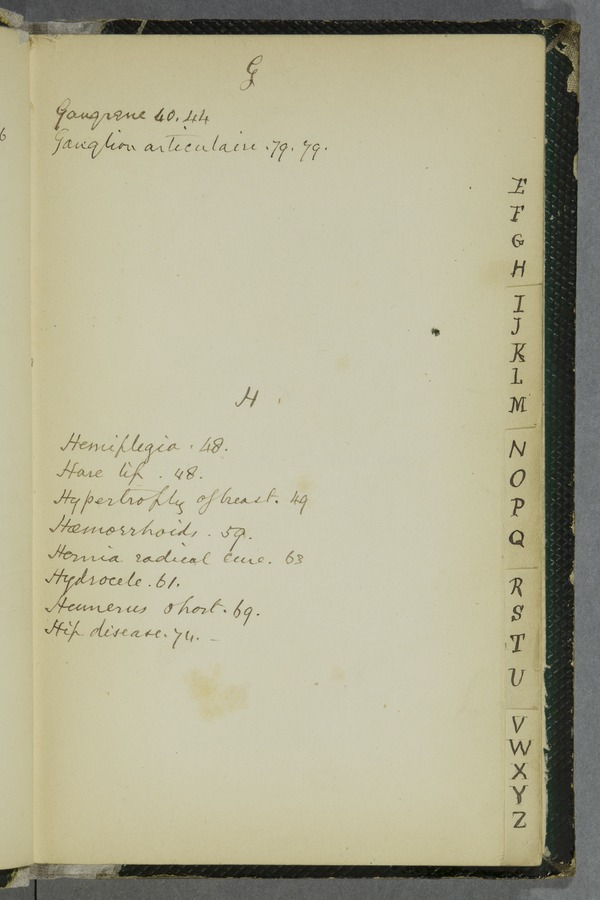 G
Gangrene 40.44
Ganglion articulaire .79.79.
H
Hemiplegia . 48.
Hare lip . 48.
Hypertrophy of breast. 49
Hæmorrhoids . 59.
Hernia radical cure. 63
Hydrocele .61.
Humerus short. 69.
Hip disease. 74. -
6
E
F
G
H
I
J
K
L
M
N
O
P
Q
R
S
T
U
V
W
X
Y
Z